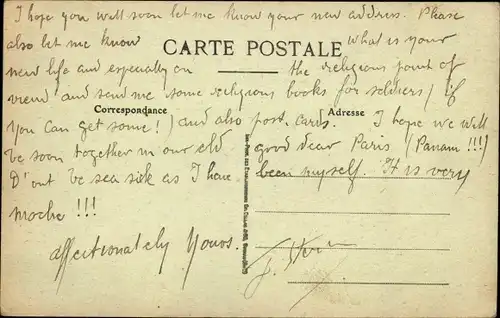 I hope you will soon let me know your new address. Please
also let me know what is your
CARTE POSTALE
new life and especially on the religious point of
view and send me some religious books for soldiers (if
Correspondance
Adresse
you can get some!) and also post. cards. I hope we will
be soon together in our old good dear Paris (Panam!!!)
D'ont be sea sick as I have been myself. It is very
moche!!!
affectionately Yours.